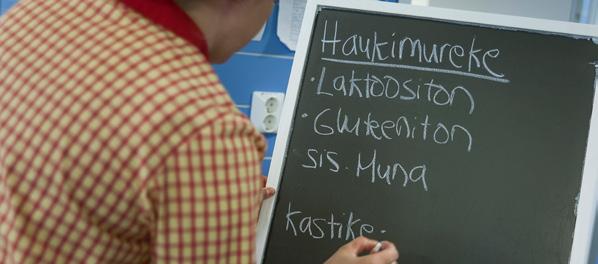 Haukimureke
· Laktoositon
· Gluteeniton
sis. Muna
Kastike: